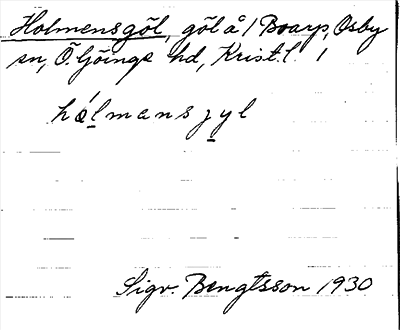 Holmensgöl, göl å 1 Boarp, Osby
sn, Ö. Göinge hd, Krist. l. 1
hólmansȷyl
Sigv. Bengtsson 1930